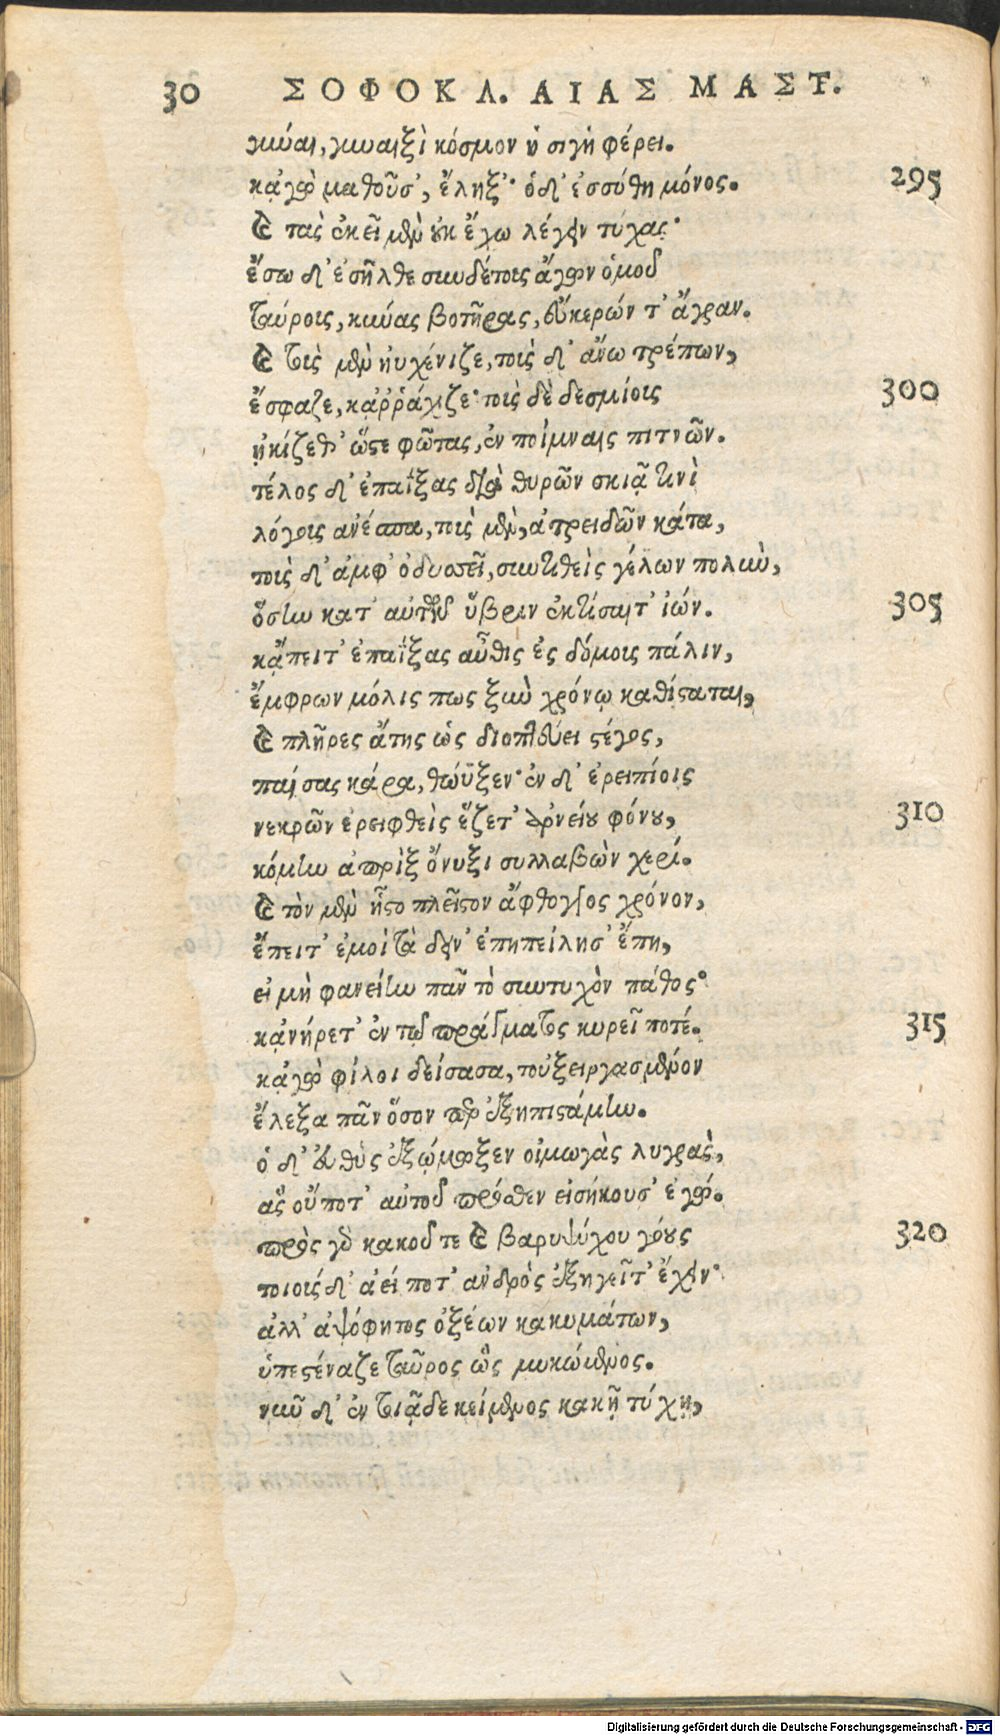 30 ΣΟΦΟΚΛ. ΑΙΑΣ ΜΑΣΤ.
γύναι, γυναιξὶ κόσμον ἡ σιγὴ φέρει.
κᾀγὼ μαθοῦσ', ἔληξ'· ὁ δ' ἐσσύθη μόνος. 295
καὶ τὰς ἐκεῖ μὲν οὐκ ἔχω λέγειν τύχας·
ἔσω δ' ἐσῆλθε συνδέτους ἄγων ὁμοῦ
ταύροις, κύνας βοτῆρας, εὔκερών τ' ἄγραν.
καὶ τοὺς μὲν ηὐχένιζε, τοὺς δ' ἄνω τρέπων,
ἔσφαζε, κᾀῤῥάχιζε· τοὺς δὲ δεσμίοις 300
ᾐκίζεθ' ὥστε φῶτας, ἐν ποίμναις πιτνῶν.
τέλος δ' ἐπαΐξας διὰ θυρῶν σκιᾷ τινὶ
λόγοις ἀνέσπα, τοὺς μὲν, ἀτρειδῶν κάτα,
τοὺς δ' ἀμφ' ὀδυσσεῖ, συντιθεὶς γέλων πολὺν,
ὅσην κατ' αὐτῶν ὕβριν ἐκτίσαιτ' ἰών. 305
κᾄπειτ' ἐπαΐξας αὖθις ἐς δόμοις πάλιν,
ἔμφρων μόλις πως ξὺν χρόνῳ καθίσταται,
καὶ πλῆρες ἄτης ὡς διοπτεύει στέγος,
παίσας κάρα, θώϋξεν· ἐν δ' ἐρειπίοις
νεκρῶν ἐρειφθεὶς ἕζετ' ἀρνείου φόνου, 310
κόμην ἀπρὶξ ὄνυξι συλλαβὼν χερί.
καὶ τὸν μὲν ἧστο πλεῖστον ἄφθογγος χρόνον,
ἔπειτ' ἐμοὶ τὰ δείν' ἐπηπείλησ' ἔπη,
εἰ μὴ φανείην πᾶν τὸ συντυχὸν πάθος·
κᾀνήρετ' ἐν τῷ πράγματος κυρεῖ ποτέ. 315
κᾀγὼ φίλοι δείσασα, τοὐξειργασμένον
ἔλεξα πᾶν ὅσον περ ἐξηπιστάμην.
ὁ δ' εὐθὺς ἐξῴμωξεν οἰμωγὰς λυγρὰς,
ἃς οὔποτ' αὐτοῦ πρόσθεν εἰσήκουσ' ἐγώ.
πρὸς γὰρ κακοῦ τε καὶ βαρυψύχου γόους 320
τοιούσδ' ἀεί ποτ' ἀνδρὸς ἐξηγεῖτ' ἔχειν·
ἀλλ' ἀψόφητος ὀξέων κακυμάτων,
ὑπεστέναζε ταῦρος ὣς μυκώμενος.
νῦν δ' ἐν τοιᾷδε κείμενος κακῇ τύχῃ,
Digitalisierung gefördert durch die Deutsche Forschungsgemeinschaft - DFG